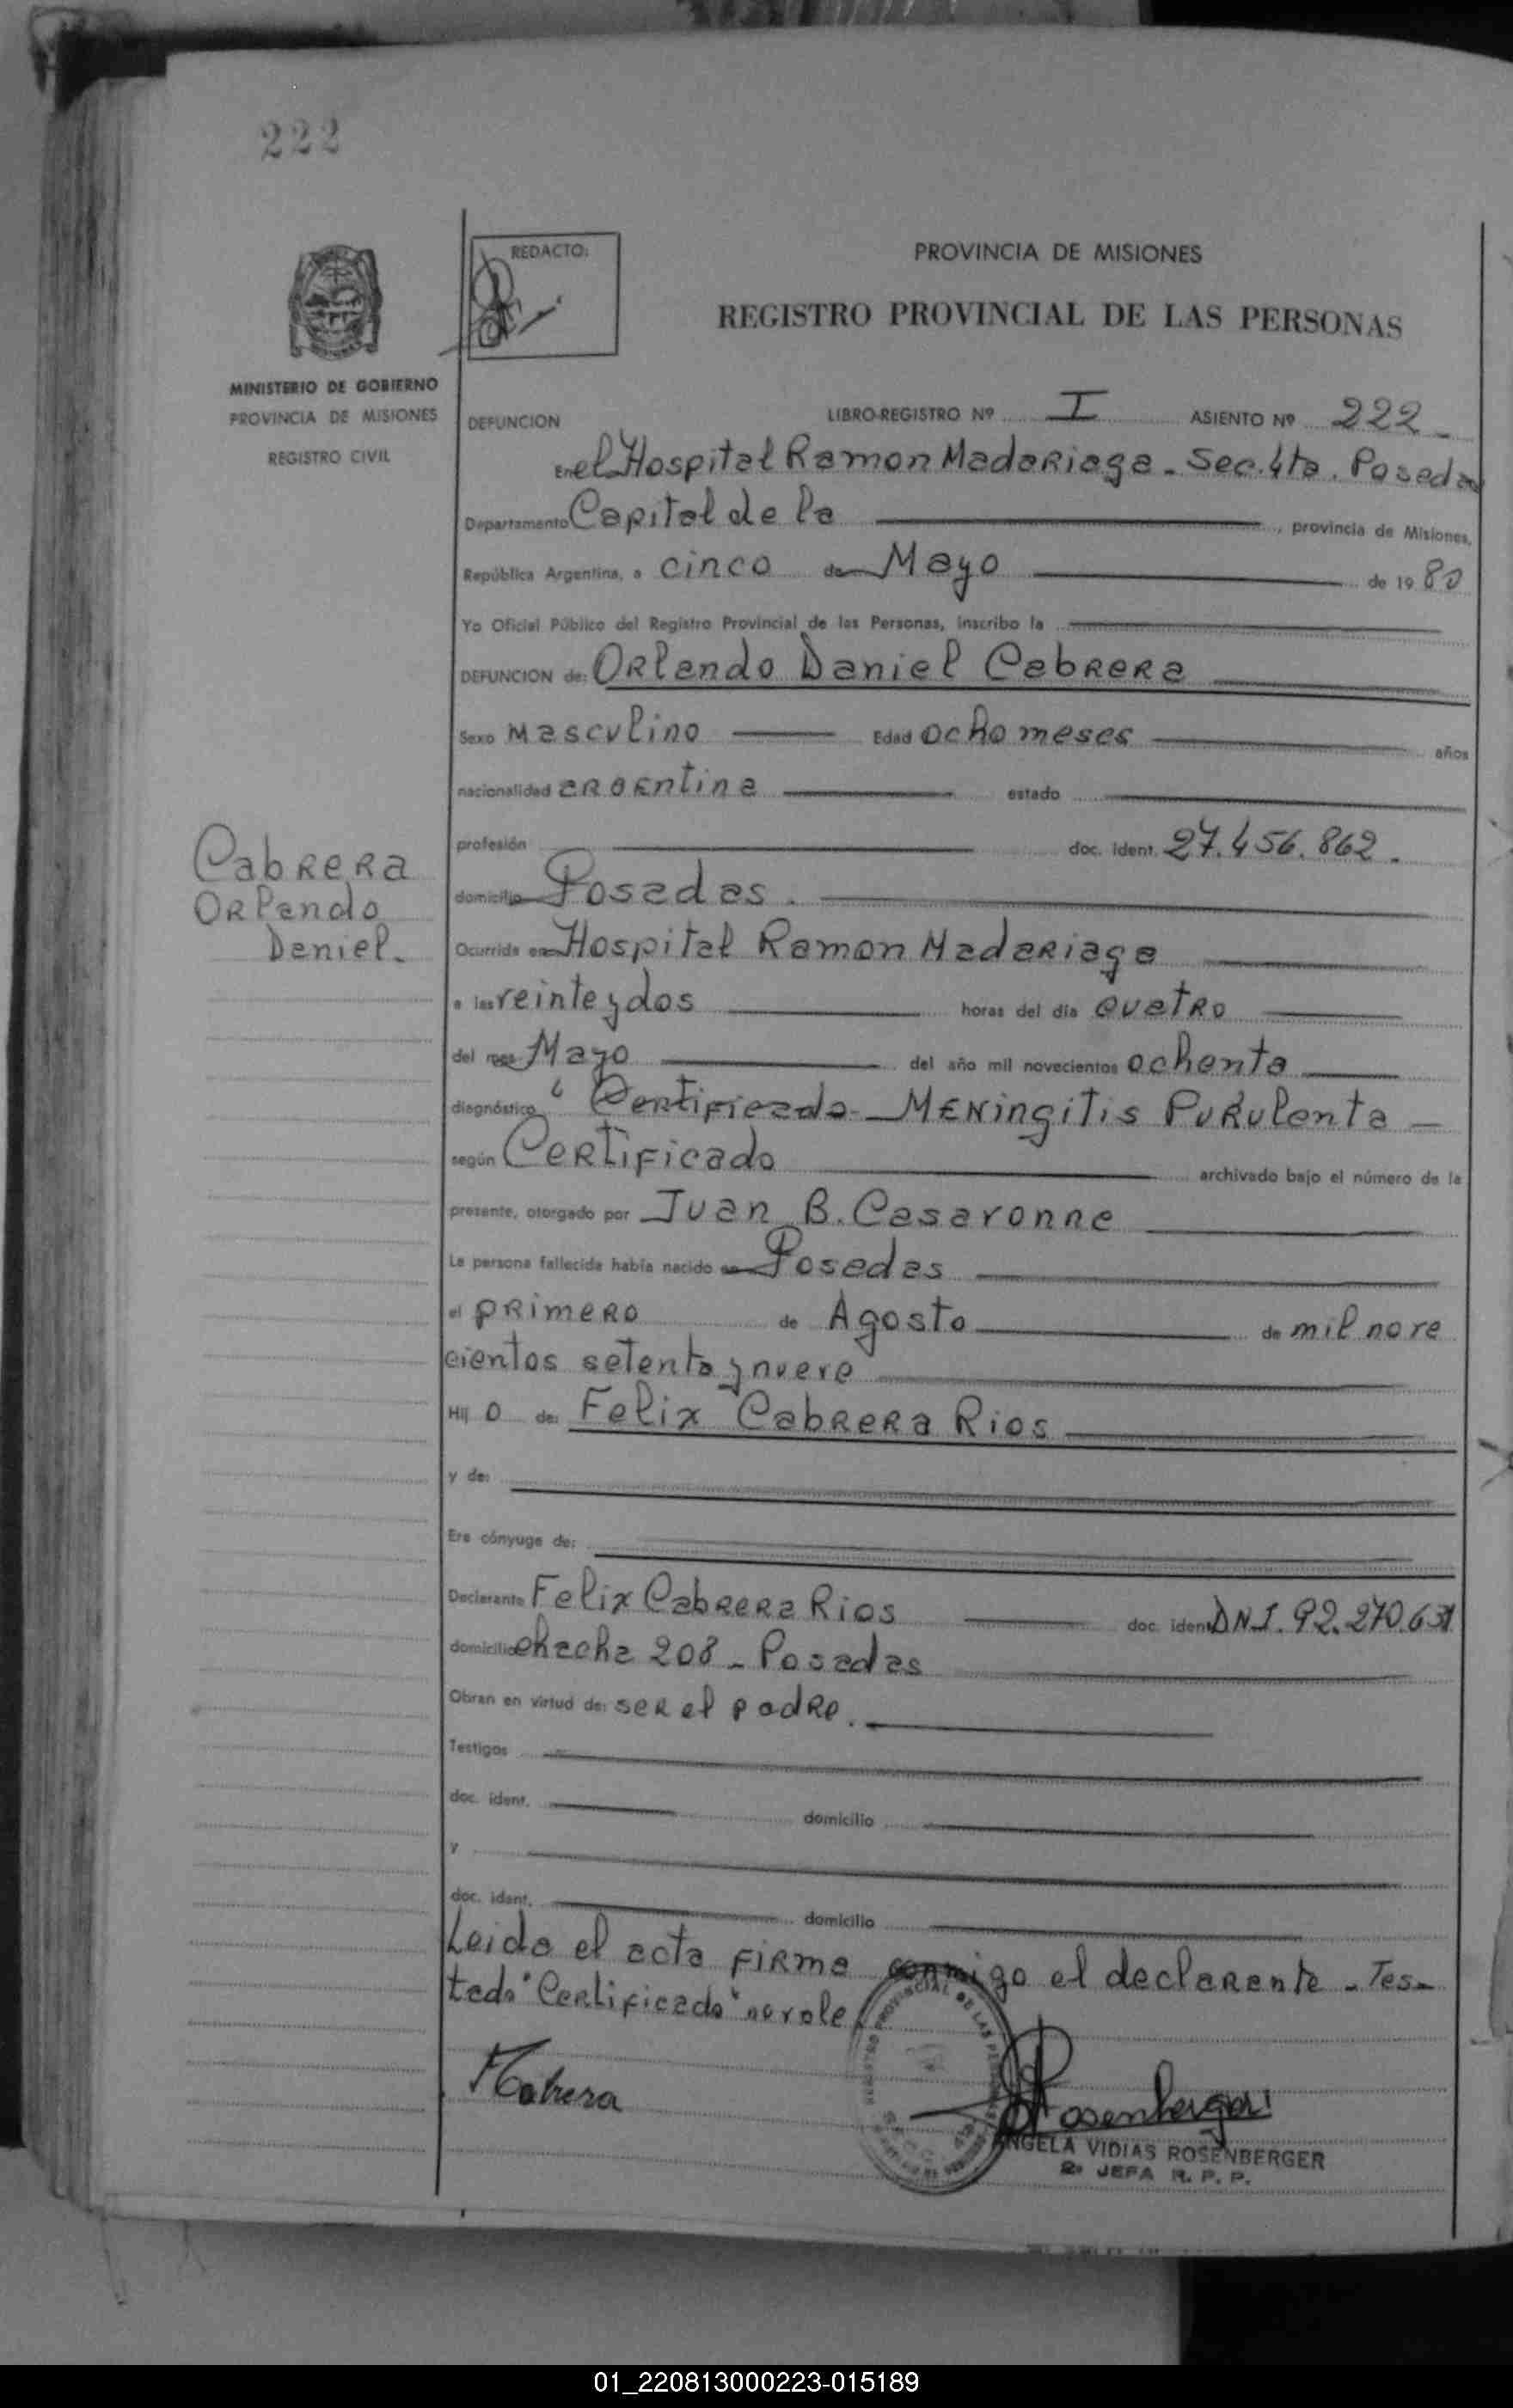 222
REDACTO:
PROVINCIA DE MISIONES
REGISTRO PROVINCIAL DE LAS PERSONAS
MINISTERIO DE GOBIERNO
PROVINCIA DE MISIONES
REGISTRO CIVIL
DEFUNCION LIBRO-REGISTRO Nº I ASIENTO Nº 222
En el Hospital Ramon Madariaga - Sec. 4ta. Posadas
Departamento Capital de la , provincia de Misiones,
República Argentina, a cinco de Mayo de 1980
Yo Oficial Público del Registro Provincial de las Personas, inscribo la
DEFUNCION de: Orlando Daniel Cabrera
Sexo Masculino Edad ocho meses años
nacionalidad argentina estado
profesión doc. ident. 27.456.862.
Cabrera
Orlando
Daniel.
domicilio Posadas.
Ocurrida en Hospital Ramon Madariaga
a las veinte y dos horas del día cuatro
del mes Mayo del año mil novecientos ochenta
diagnóstico " Certificado - Meningitis Purulenta -
según Certificado archivado bajo el número de la
presente, otorgado por Juan B. Casaronne
La persona fallecida había nacido en Posadas
el primero de Agosto de mil nove
cientos setenta y nueve
Hij o de: Felix Cabrera Rios
y de:
Era cónyuge de:
Declarante Felix Cabrera Rios doc. ident. DNI. 92.270.631
domicilio chacha 208 - Posadas
Obran en virtud de: ser el padre.
Testigos
doc. ident. domicilio
y
doc. ident. domicilio
Leido el acta firma conmigo el declarante - Tes-
tado "Certificado" no vale
REGISTRO PROVINCIAL DE LAS PERSONAS
FCabrera
Rosenberger
ANGELA VIDIAS ROSENBERGER
2º JEFA R. P. P.
01_220813000223-015189